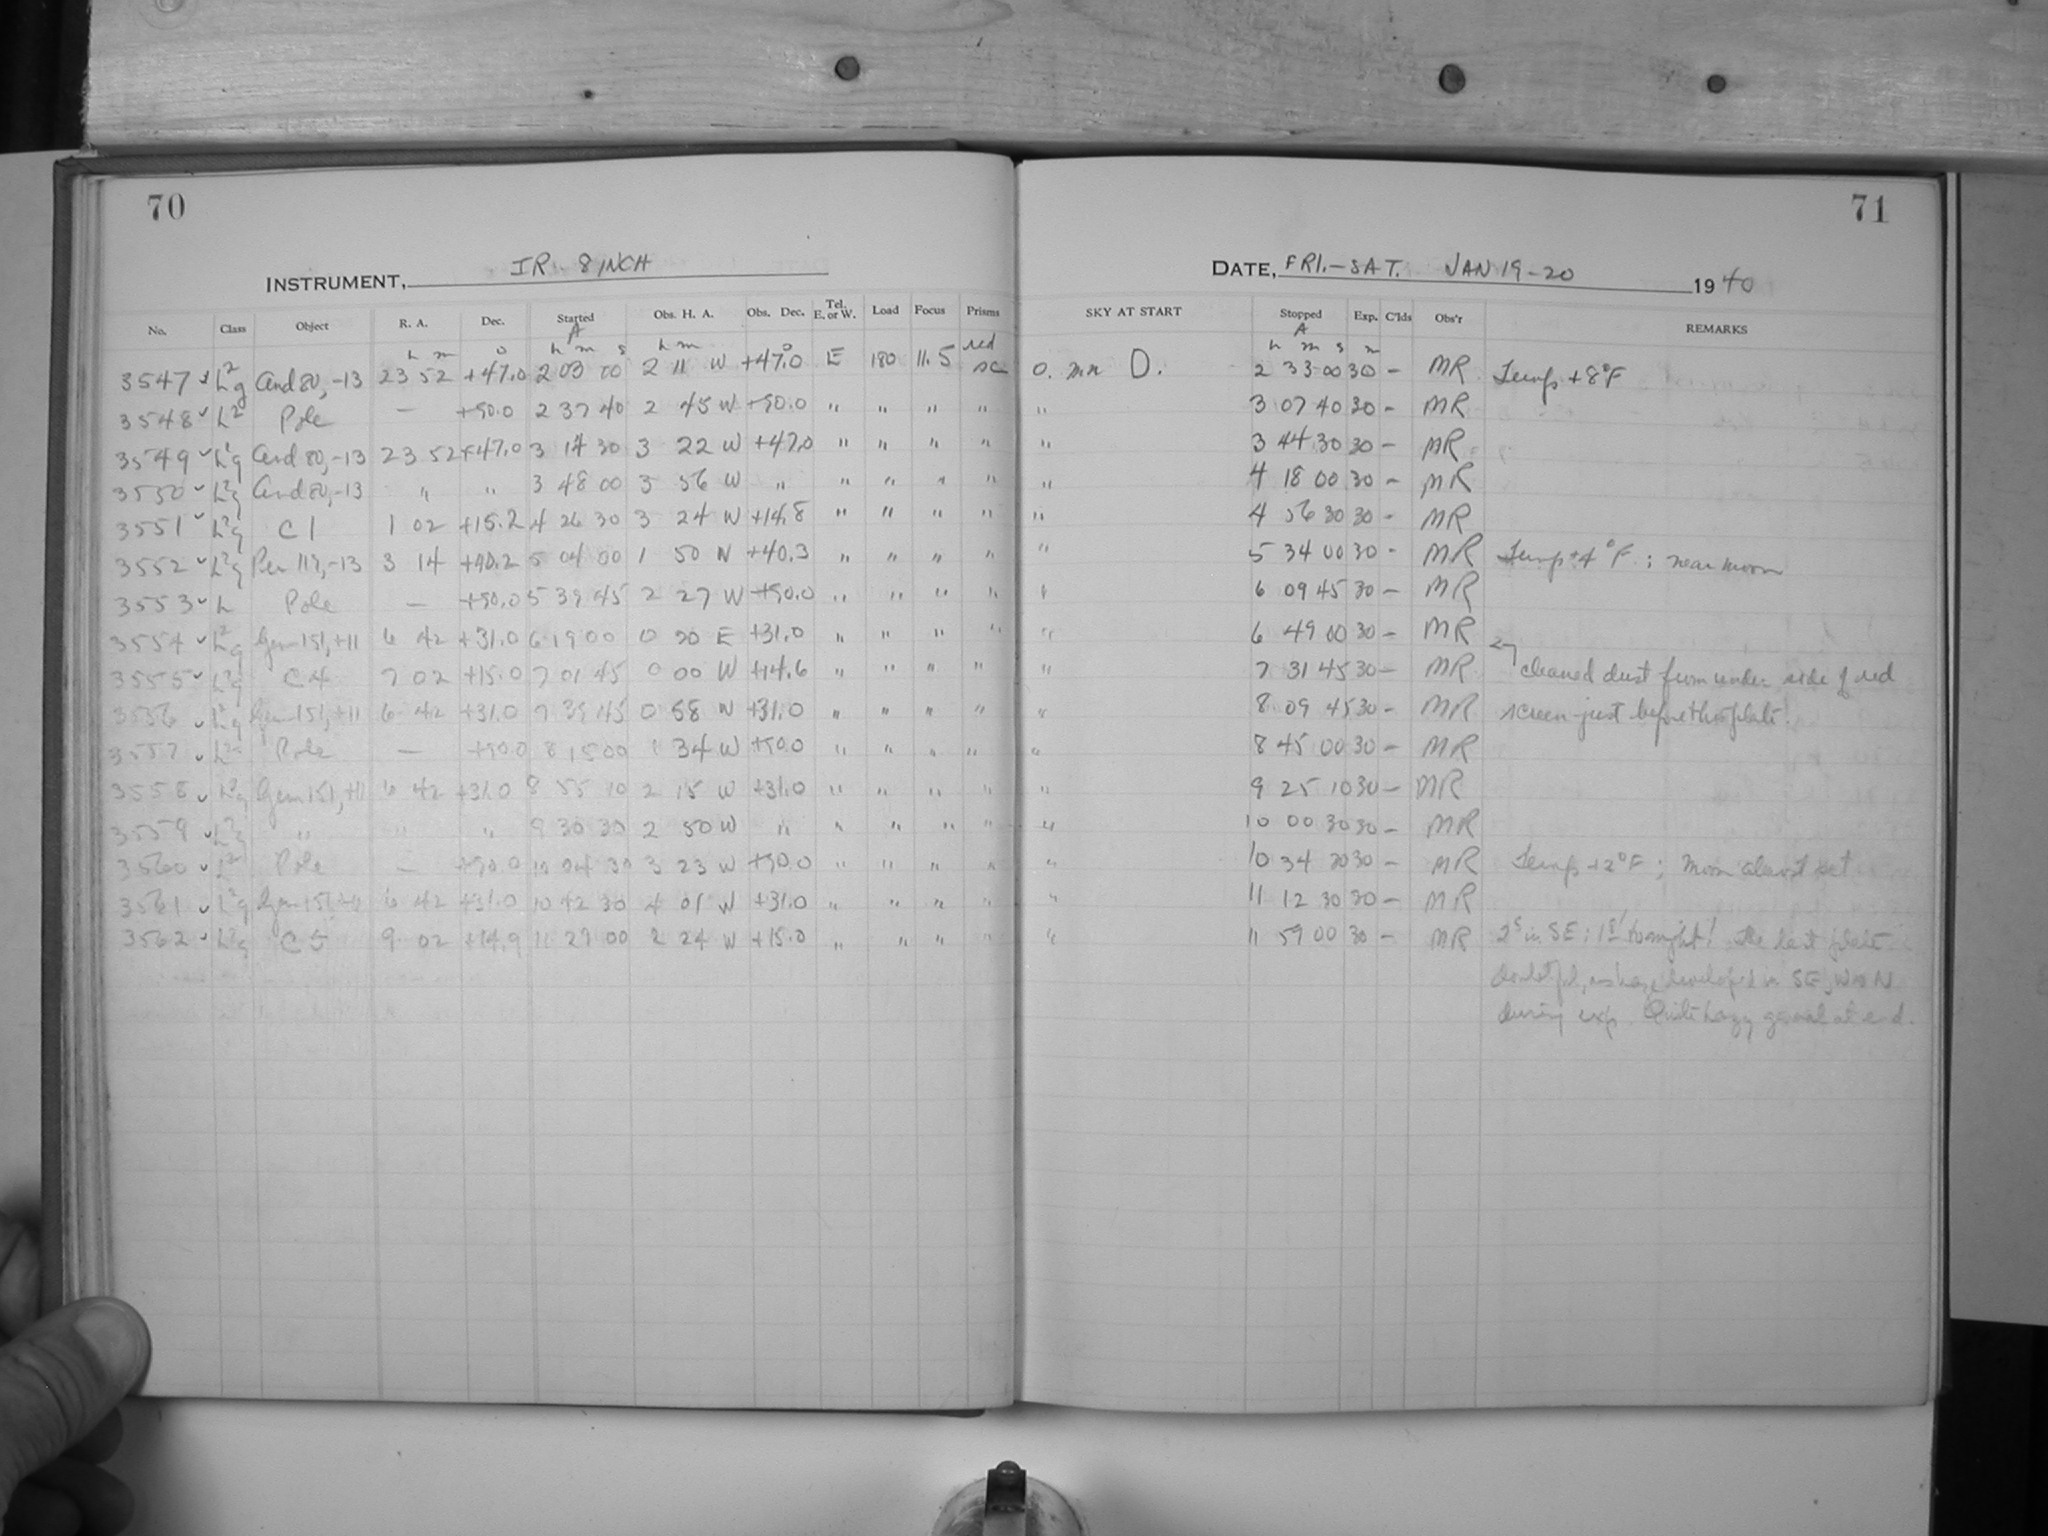 70
71
INSTRUMENT, IR 8 INCH
DATE, FRI.-SAT. JAN 19-20 1940
No. Class Object R. A. Dec. Started Obs. H. A. Obs. Dec. Tel. E. or W. Load Focus Prisms SKY AT START Stopped Exp. C'lds Obs'r REMARKS
A A
h m ° h m s h m ° red h m s m
3547 ✓ L²g And 80, -13 23 52 +47.0 2 03 00 2 11 W +47.0 E 180 11.5 sc 0. mn D. 2 33 00 30 - MR Temp +8°F
3548 ✓ L² Pole — +90.0 2 37 40 2 45 W +90.0 " " " " " 3 07 40 30 - MR
3549 ✓ L²g And 80, -13 23 52 +47.0 3 14 30 3 22 W +47.0 " " " " " 3 44 30 30 - MR
3550 ✓ L²g And 80, -13 " " 3 48 00 3 56 W " " " " " " 4 18 00 30 - MR
3551 ✓ L²g C 1 1 02 +15.2 4 26 30 3 24 W +14.8 " " " " " 4 56 30 30 - MR
3552 ✓ L²g Per 117, -13 3 14 +40.2 5 04 00 1 50 W +40.3 " " " " " 5 34 00 30 - MR Temp +4°F ; near moon
3553 ✓ L Pole — +90.0 5 39 45 2 27 W +90.0 " " " " " 6 09 45 30 - MR
3554 ✓ L²g Gem 151, +11 6 42 +31.0 6 19 00 0 20 E +31.0 " " " " " 6 49 00 30 - MR
3555 ✓ L²g C 4 7 02 +15.0 7 01 45 0 00 W +14.6 " " " " " 7 31 45 30 - MR cleaned dust from under side of red
3556 ✓ L²g Gem 151, +11 6 42 +31.0 7 39 45 0 58 W +31.0 " " " " " 8 09 45 30 - MR screen just before this plate!
3557 ✓ L² Pole — +90.0 8 15 00 1 34 W +90.0 " " " " " 8 45 00 30 - MR
3558 ✓ L²g Gem 151, +11 6 42 +31.0 8 55 10 2 15 W +31.0 " " " " " 9 25 10 30 - MR
3559 ✓ L²g " " " 9 30 30 2 50 W " " " " " " 10 00 30 30 - MR
3560 ✓ L² Pole — +90.0 10 04 30 3 23 W +90.0 " " " " " 10 34 30 30 - MR Temp +2°F ; Moon almost set
3561 ✓ L²g Gem 151, +11 6 42 +31.0 10 42 30 4 01 W +31.0 " " " " " 11 12 30 30 - MR
3562 ✓ L²g C 5 9 02 +14.9 11 29 00 2 24 W +15.0 " " " " " 11 59 00 30 - MR in SE ; 1st tonight! The last plate
doubtful, as haze developed in SE, W & N
during exp. Quite hazy general at end.